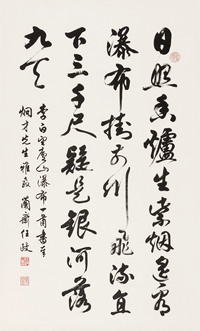 日照香爐生紫烟遥看
瀑布掛前川飛流直
下三千尺疑是銀河落
九天
李白望廬山瀑布一首書
炯才先生雅教 蘭齋任政